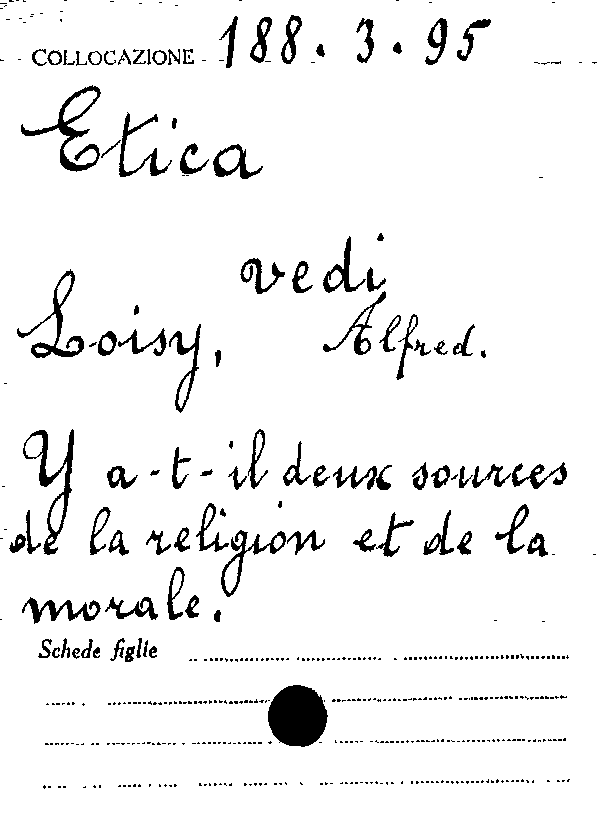 COLLOCAZIONE 188.3.95
Etica
vedi
Loisy, Alfred.
Y a-t-il deux sources
de la religion et de la
morale.
Schede figlie